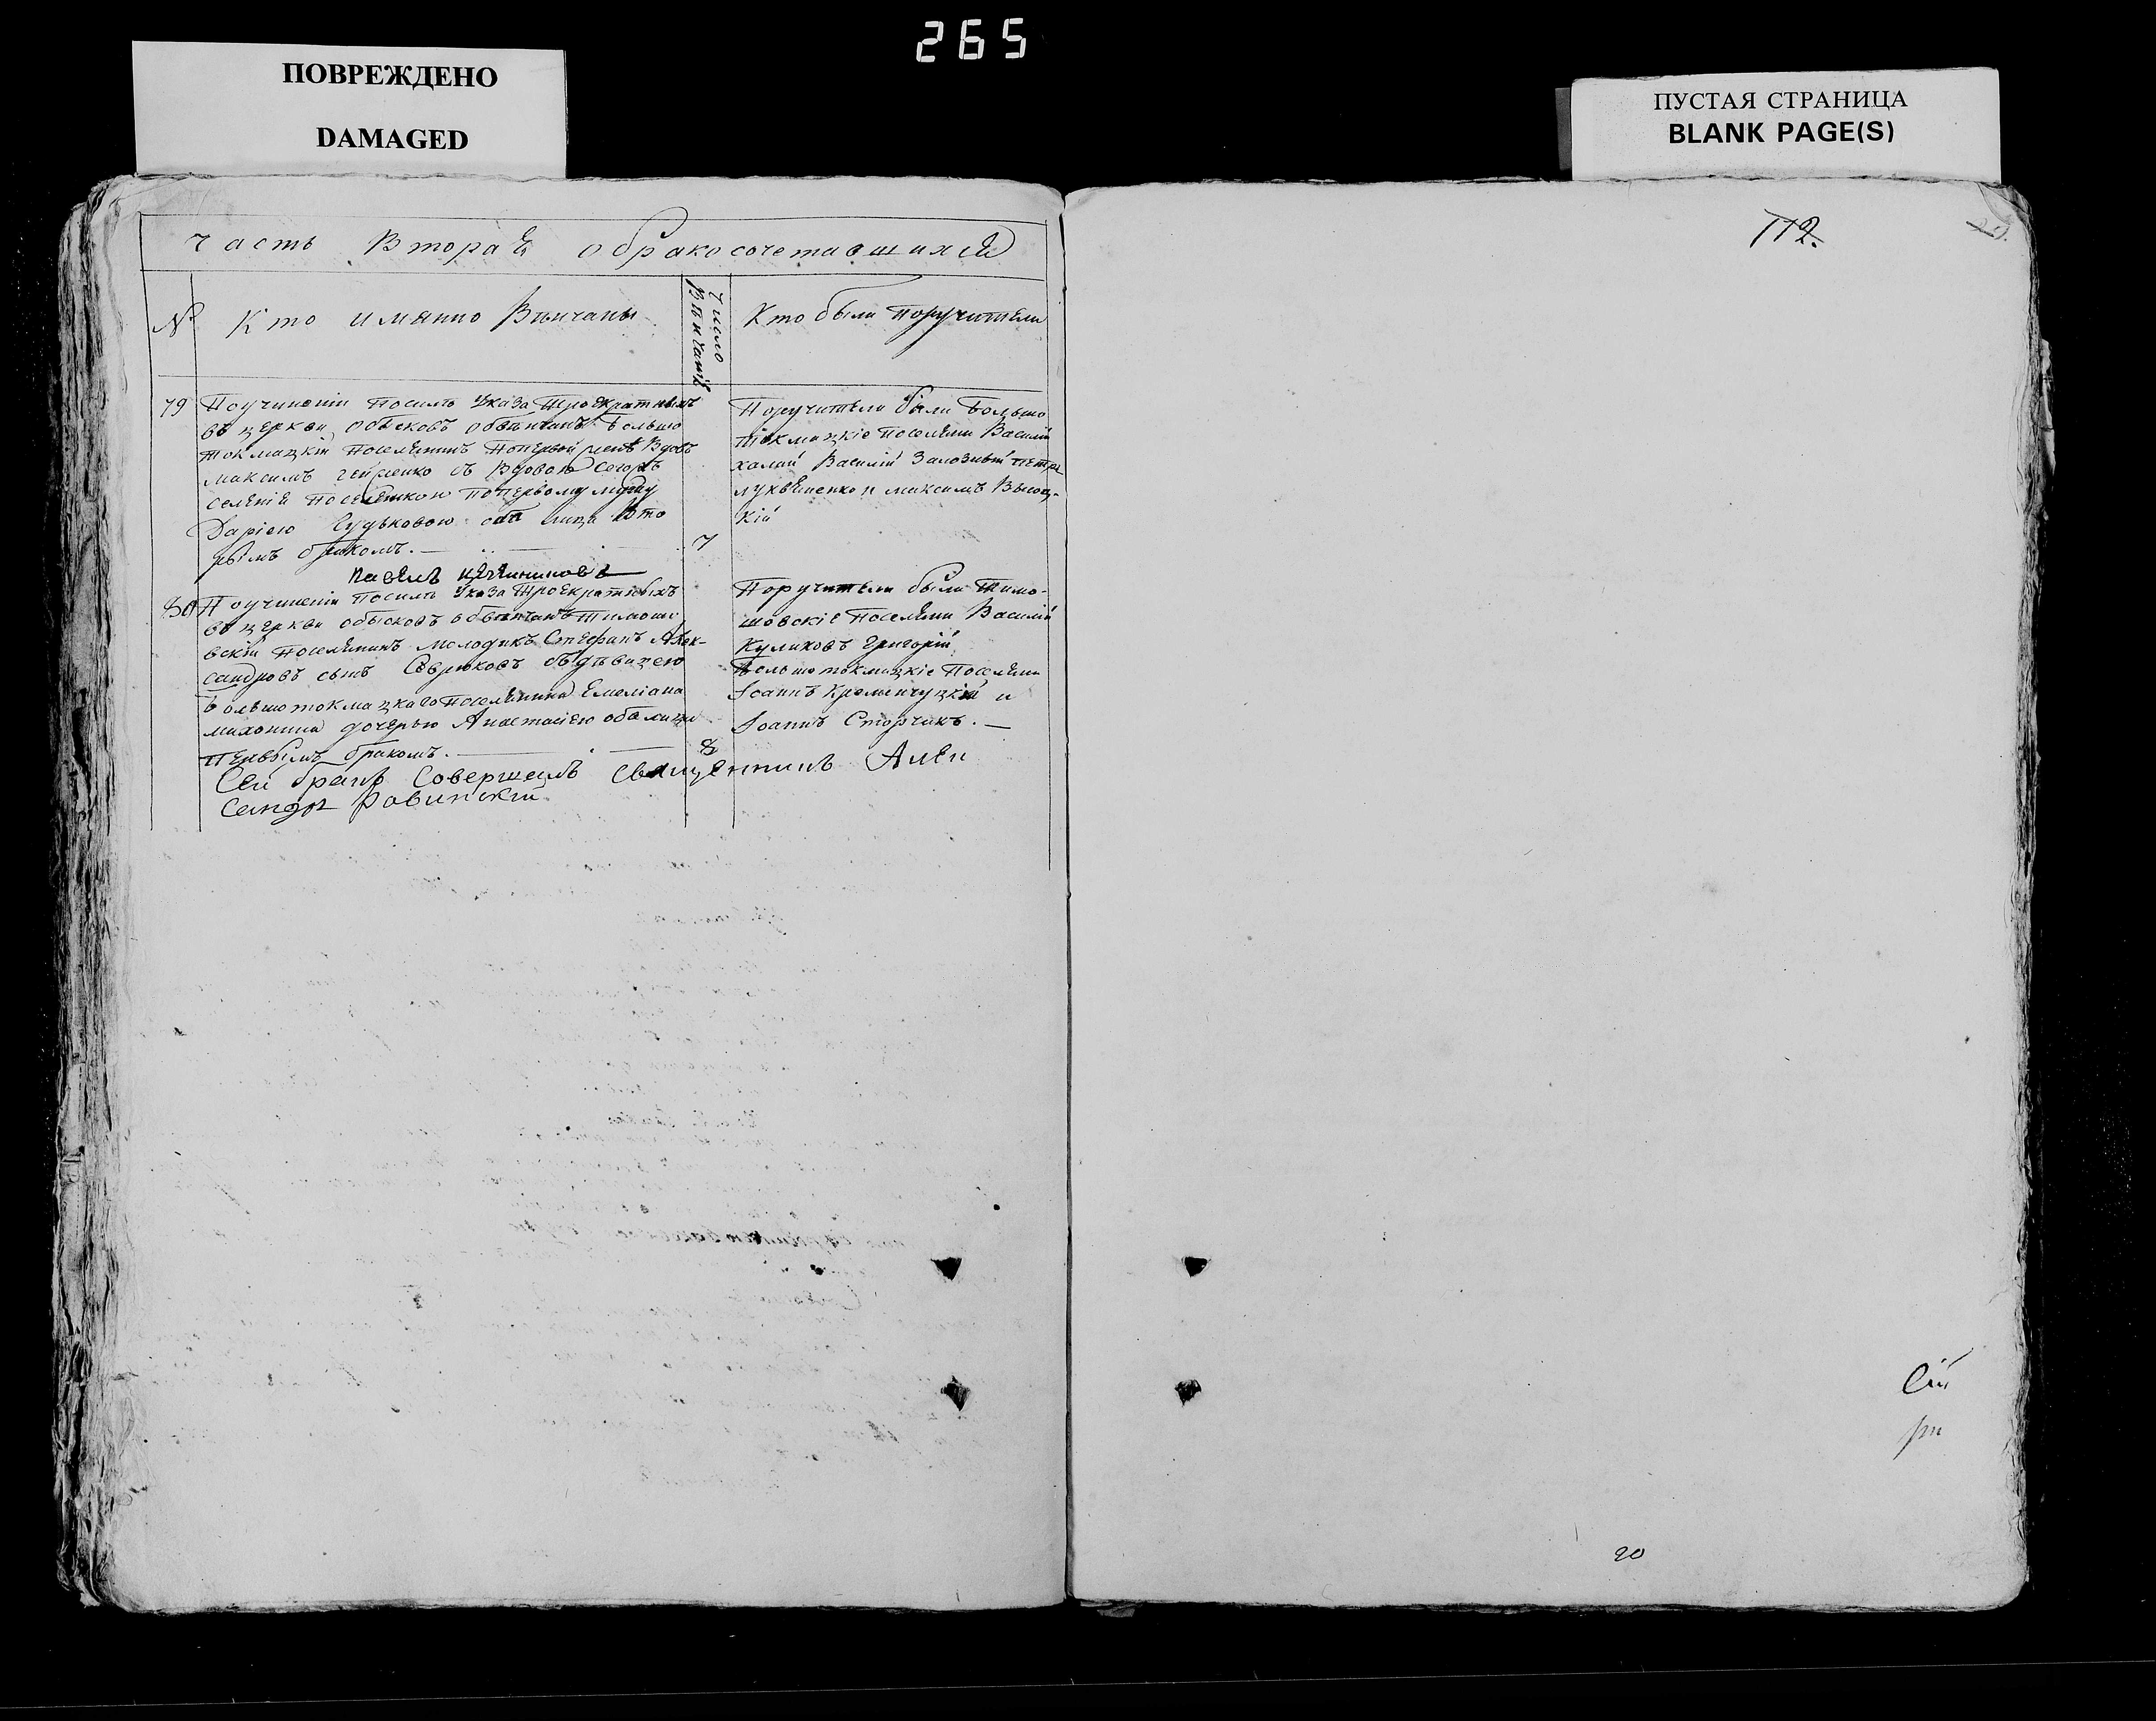 265
ПОВРЕЖДЕНО
DAMAGED
ПУСТАЯ СТРАНИЦА
BLANK PAGE(S)
112.
Часть Вторая обракосочетавшихся
№
Кто имянно Вѣнчаны
Число Вѣнчанія
Кто были Поручители
79
Поучиненіи Посилѣ Указа Троекратныхъ
въ церкви обысковъ обвѣнчанъ Большо
токмацкій Поселянинъ Попервой женѣ Вдовъ
Максимъ съ Вдовою сегожъ
селенія Поселянкою Попервому мужу
Даріею Гудьковою оба лица Вто
рымъ бракомъ.
7
Поручители были Большо
токмацкіе Поселяне Василій
Халий Василій Залозный Петръ
Лукьяненко и Максимъ Высоц-
кій
Павелъ
80
Поучиненіи Посилѣ Указа Троекратныхъ
въ церкви обысковъ обвѣнчанъ Тимоше
вскій Поселянинъ молодикъ Стефанъ Алек-
сандровъ сынъ Севрюковъ съдѣвицею
Большотокмацкаго Поселянина Емеліана
Махонина дочерью Анастасіею оба лица
Первымъ бракомъ.
8
Поручители были Тимо-
шовскіе Поселяне Василій
Куликовъ Григорій
Большотокмацкіе Поселяне
Іоаннъ Кременчуцкій и
Іоаннъ Сторчакъ.
Сей бракъ Совершилъ Священникъ Алек
сандръ Ровинскій
20